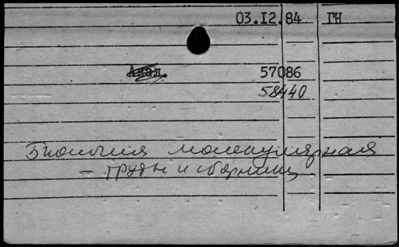 03.12.84 ГН
Абал.
57086
58440
Биология молекулярная
— труды и сборники